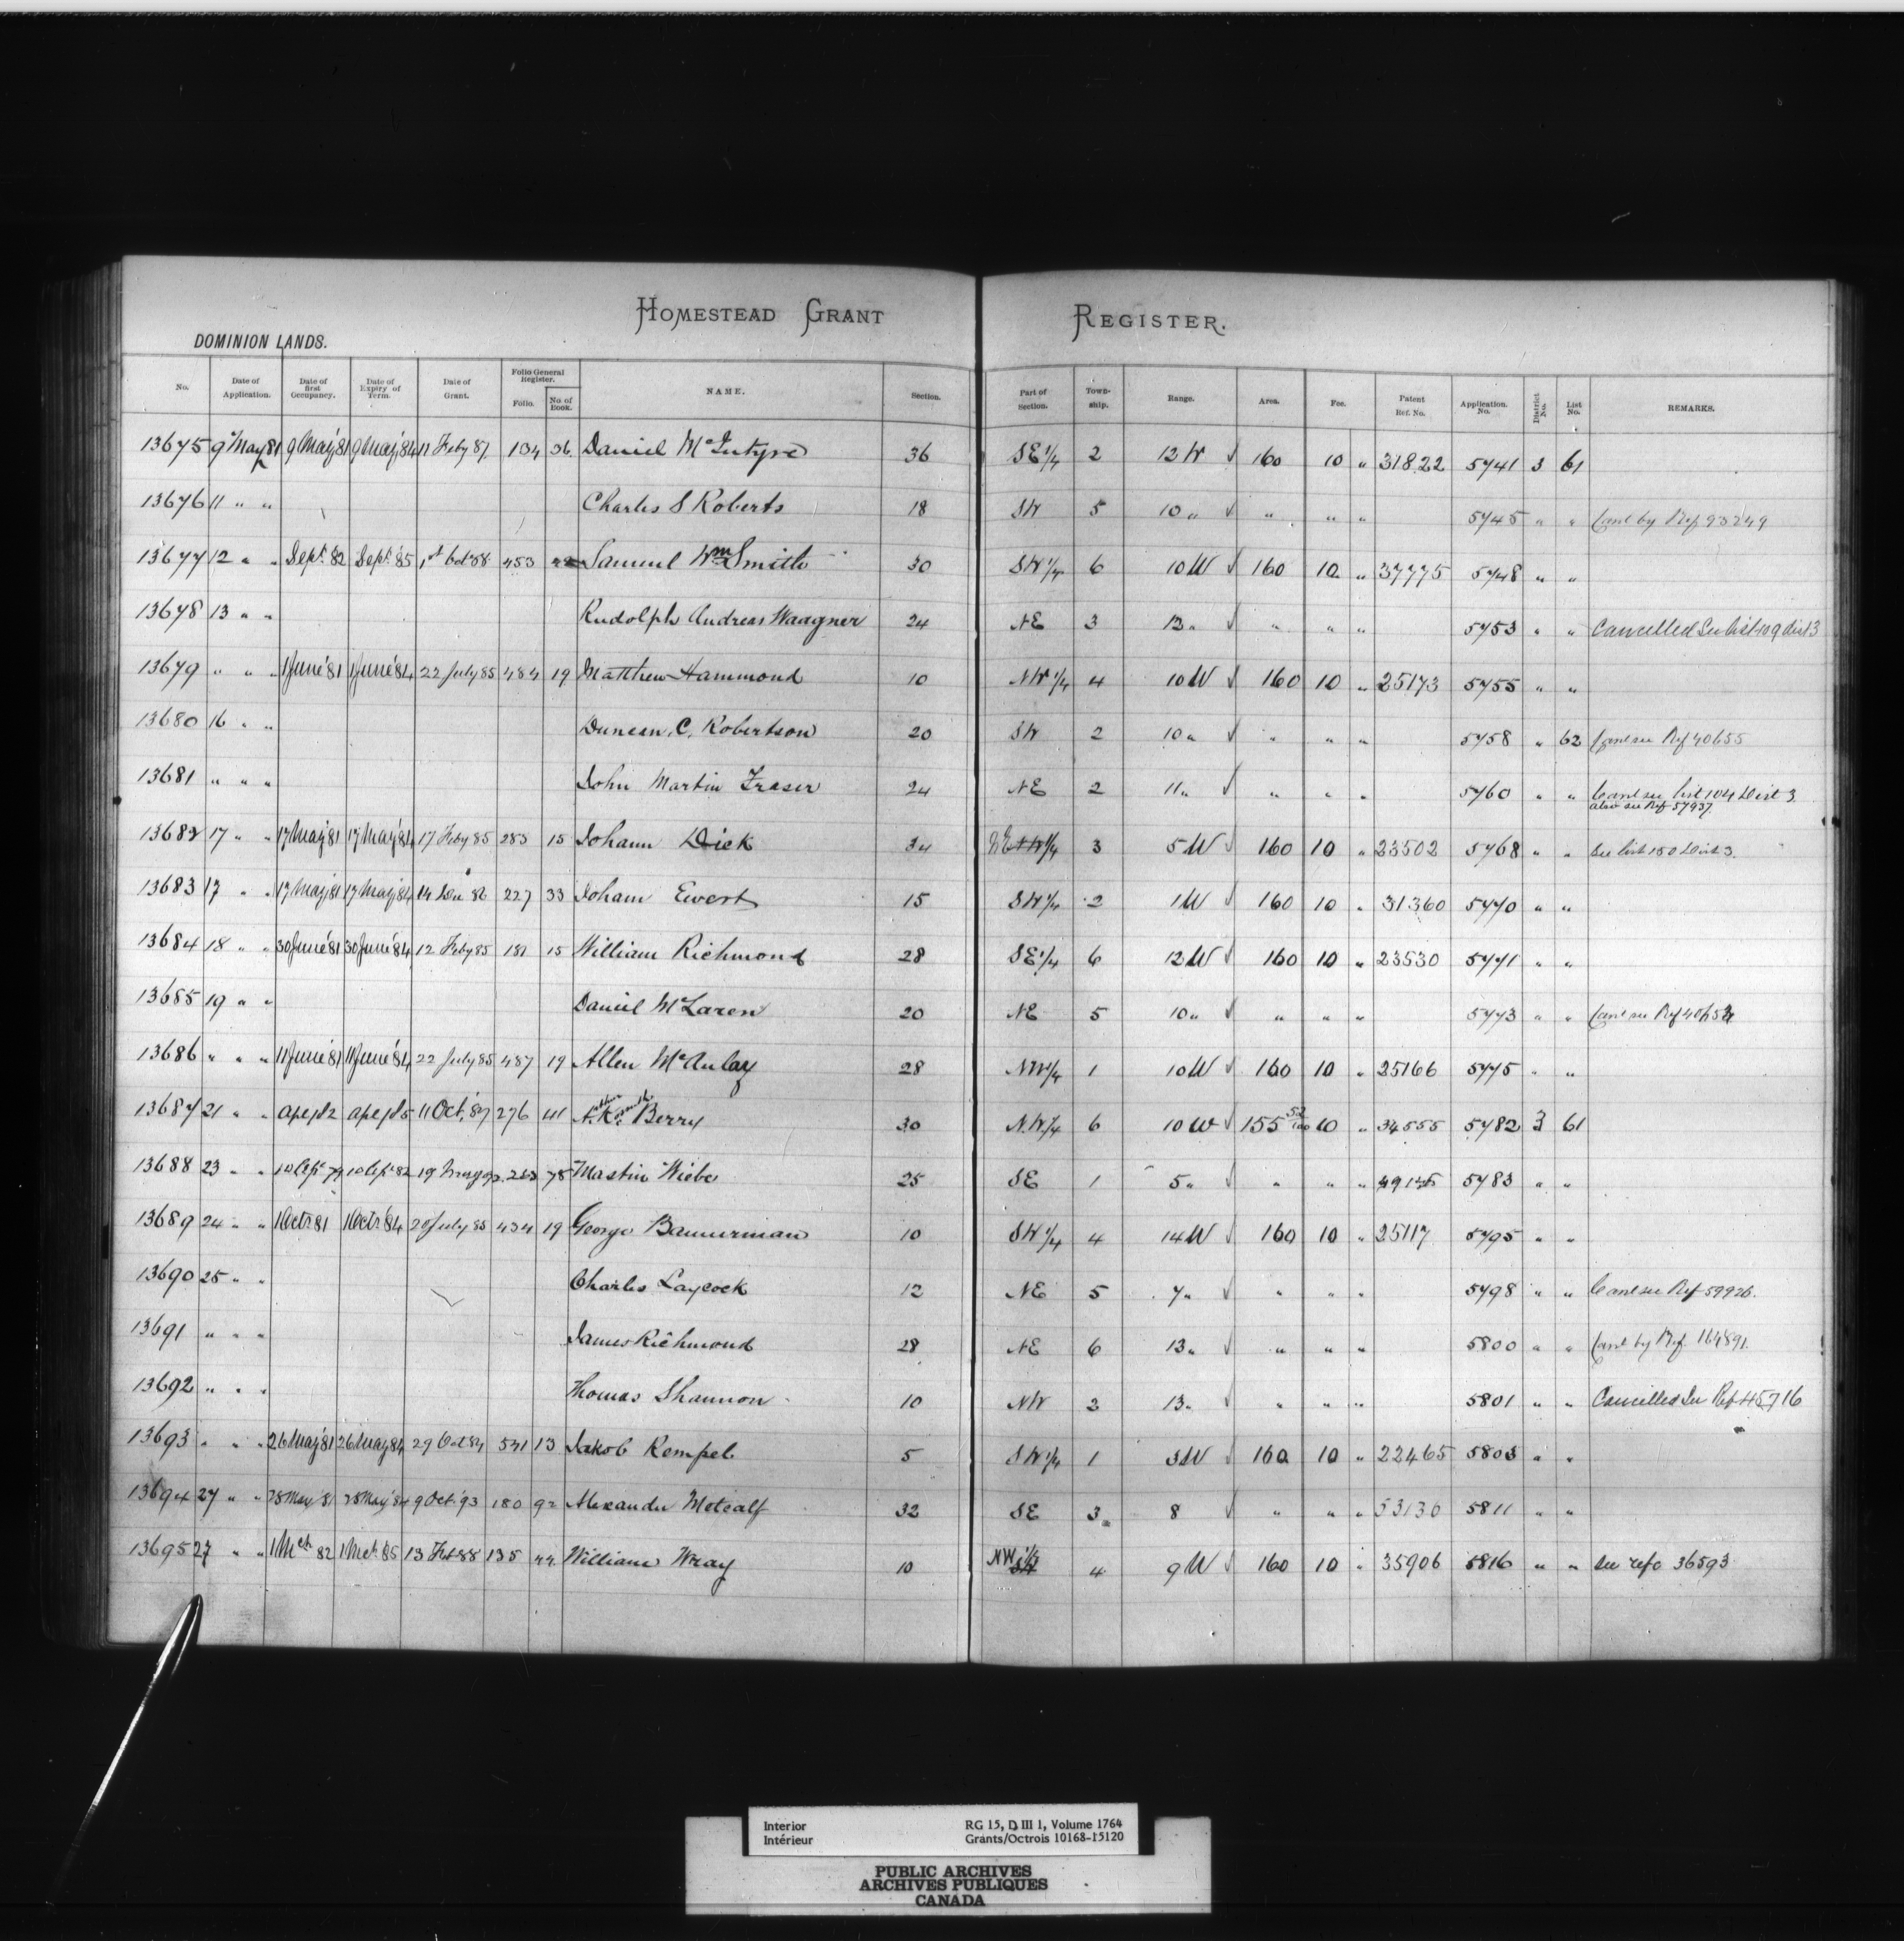 HOMESTEAD GRANT REGISTER.
DOMINION LANDS.
No. Date of Application. Date of first Occupancy. Date of Expiry of Term. Date of Grant. Folio General Register. Folio. No. of Book. NAME. Section. Part of Section. Town-ship. Range. Area. Fee. Patent Ref. No. Application. No. District No. List No. REMARKS.
13675 9 May 81 9 May '81 9 May '84 11 Feby 87 134 36 Daniel McIntyre 36 SE 1/4 2 12 W √ 160 10 " 31822 5741 3 61
13676 11 " " Charles S Roberts 18 SW 5 10 " √ " " " 5745 " " Canc by Ref 93249
13677 12 " " Sept. 82 Sept. 85 1st Oct 88 453 Samuel Wm Smith 30 SW 1/4 6 10 W √ 160 10 " 37775 5748 " "
13678 13 " " Rudolph Andreas Waagner 24 NE 3 12 " √ " " " 5753 " " Cancelled See list 109 dist 3
13679 " " " 1 June '81 1 June '84 22 July 85 484 19 Matthew Hammond 10 NW 1/4 4 10 W √ 160 10 " 25173 5755 " "
13680 16 " " Duncan. C. Robertson 20 SW 2 10 " √ " " " 5758 " 62 Canc see Ref 40655
13681 " " " John Martin Fraser 24 NE 2 11 " √ " " " 5760 " " Canc see list 104 Dist 3.
also see Ref 57937.
13682 17 " " 17 May '81 17 May '84 17 Feby 85 283 15 Johann Dick 34 1/4 3 5 W √ 160 10 " 23502 5768 " " See list 150 Dist 3.
13683 17 " " 17 May '81 17 May '84 14 Dec 86 227 33 Johann Ewert 15 SW 1/4 2 1 W √ 160 10 " 31360 5770 " "
13684 18 " " 30 June '81 30 June '84 12 Feby 85 181 15 William Richmond 28 SE 1/4 6 12 W √ 160 10 " 23530 5771 " "
13685 19 " " Daniel McLaren 20 NE 5 10 " √ " " " 5773 " " Canc see Ref
13686 " " " 11 June '81 11 June '84 22 July 85 487 19 Allen McAulay 28 NW 1/4 1 10 W √ 160 10 " 25166 5775 " "
13687 21 " " Apl 82 Apl 85 11 Oct. '87 276 41 Berry 30 N.W 1/4 6 10 W √ 155 52/100 10 " 34555 5782 3 61
13688 23 " " 10 Sept 79 10 Sept 82 78 Martin Wiebe 25 SE 1 5 " √ " " " 5783 " "
13689 24 " " 1 Oct '81 1 Oct '84 20 July 85 434 19 George Bannerman 10 SW 1/4 4 14 W √ 160 10 " 25117 5795 " "
13690 25 " " Charles Laycock 12 NE 5 7 " √ " " " 5798 " " Canc see Ref 59926.
13691 " " " James Richmond 28 NE 6 13 " √ " " " 5800 " " Canc by Ref. 164891
13692 " " " Thomas Shannon 10 NW 2 13 " √ " " " 5801 " " Cancelled See Ref 45716
13693 " " " 26 May '81 26 May 84 29 Oct 84 531 13 Jakob Rempel 5 SW 1/4 1 3 W √ 160 10 " 22465 5803 " "
13694 27 " " 28 May 81 28 May '84 9 Oct. '93 180 92 Alexander Metcalf 32 SE 3 8 √ " " " 53130 5811 " "
13695 27 " " 1 Mch 82 1 Mch 85 13 Feb 88 135 44 William Wray 10 NW 1/4 4 9 W √ 160 10 " 35906 5816 " " See refc 36593
Interior RG 15, D III 1, Volume 1764
Intérieur Grants/Octrois 10168-15120
PUBLIC ARCHIVES
ARCHIVES PUBLIQUES
CANADA